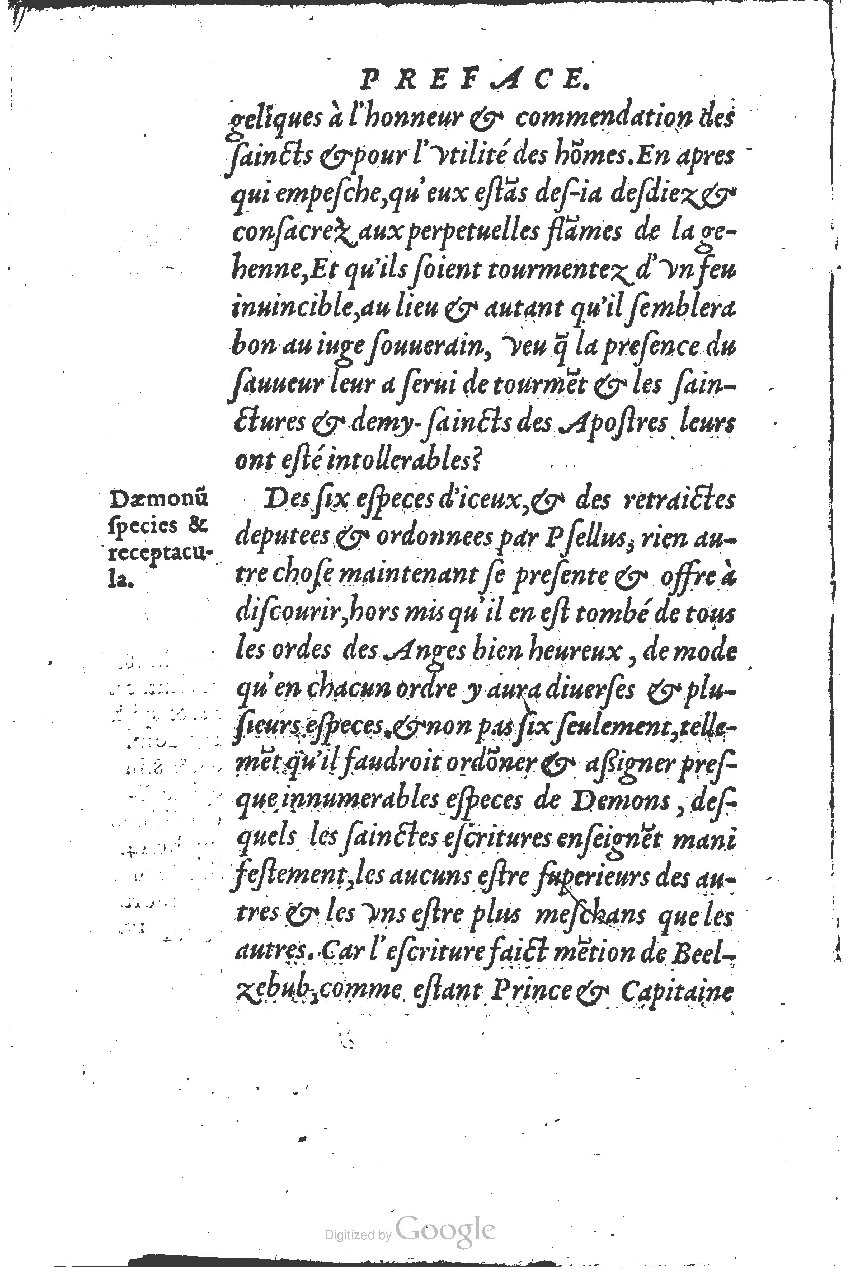 PREFACE.
gelĩques à l'honneur & commendation des
ſaincts & pour l'vtilité des hõmes. En apres
qui empeſche, qu'eux eſtãs deſ-ia deſdiez &
conſacrez aux perpetuelles flãmes de la ge-
henne, Et qu'ils ſoient tourmentez d'vn feu
inuincible, au lieu & autant qu'il ſemblera
bon au iuge ſouuerain, veu q̃ la preſence du
ſauueur leur a ſerui de tourmẽt & les ſain-
ctures & demy-ſaincts des Apoſtres leurs
ont eſté intollerables?
Dæmonũ
ſpecies &
receptacu-
la.
Des ſix eſpeces d'iceux, & des retraictes
deputees & ordonnees par Pſellus, rien au-
tre choſe maintenant ſe preſente & offre à
diſcourir, hors mis qu'il en eſt tombé de tous
les ordes des Anges bien heureux, de mode
qu'en chacun ordre y aura diuerſes & plu-
ſieurs eſpeces. & non pas ſix ſeulement, telle-
mẽt qu'il faudroit ordõner & aßigner preſ-
que innumerables eſpeces de Demons, deſ-
quels les ſainctes eſcritures enſeignẽt mani
feſtement, les aucuns eſtre ſuperieurs des au-
tres & les vns eſtre plus meſchans que les
autres. Car l'eſcriture faict mẽtion de Beel-
zebub, comme eſtant Prince & Capitaine
Digitized by Google